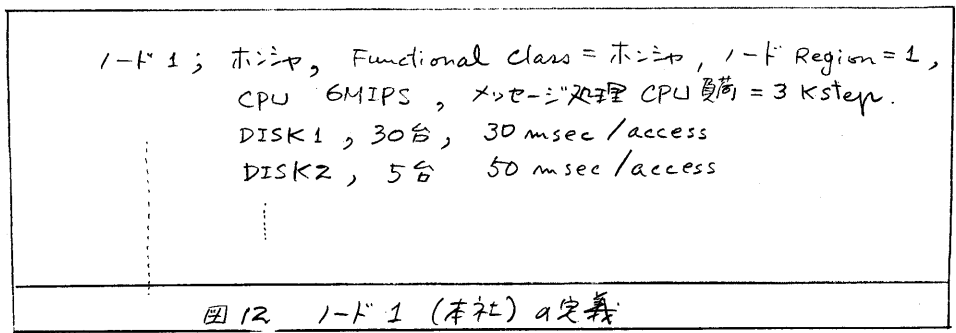 ノード1; ホンシャ, Functional Class = ホンシャ, ノード Region = 1,
CPU 6MIPS, メッセージ処理 CPU負荷 = 3 Kstep.
DISK1, 30台, 30 msec/access
DISK2, 5台 50 msec/access
図12 ノード1 (本社)の定義